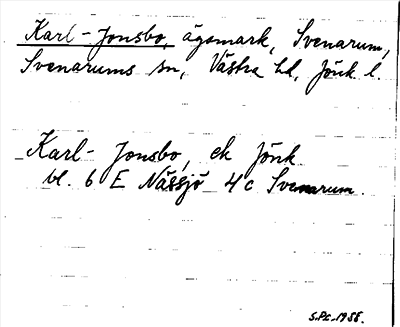 Karl-Jonsbo, ägomark, Svenarum,
Svenarums sn, Västra hd, Jönk l.
Karl-Jonsbo, ek Jönk
bl. 6 E Nässjö 4c Svenarum.
S.Pl. 1958.